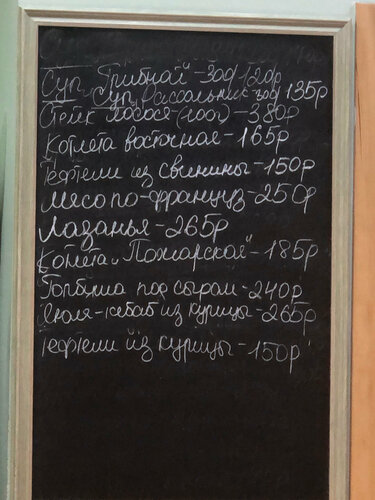 Суп "Грибной" - 300/120р
Суп Рассольник 300/135р
Стейк лосося (100г) - 380р
Котлета восточная - 165р
Тефтели из свинины - 150р
Мясо по-француз - 250р
Лазанья - 265р
Котлета "Пожарская" - 185р
Горбуша под сыром - 240р
Люля-кебаб из курицы - 265р
Тефтели из курицы - 150р